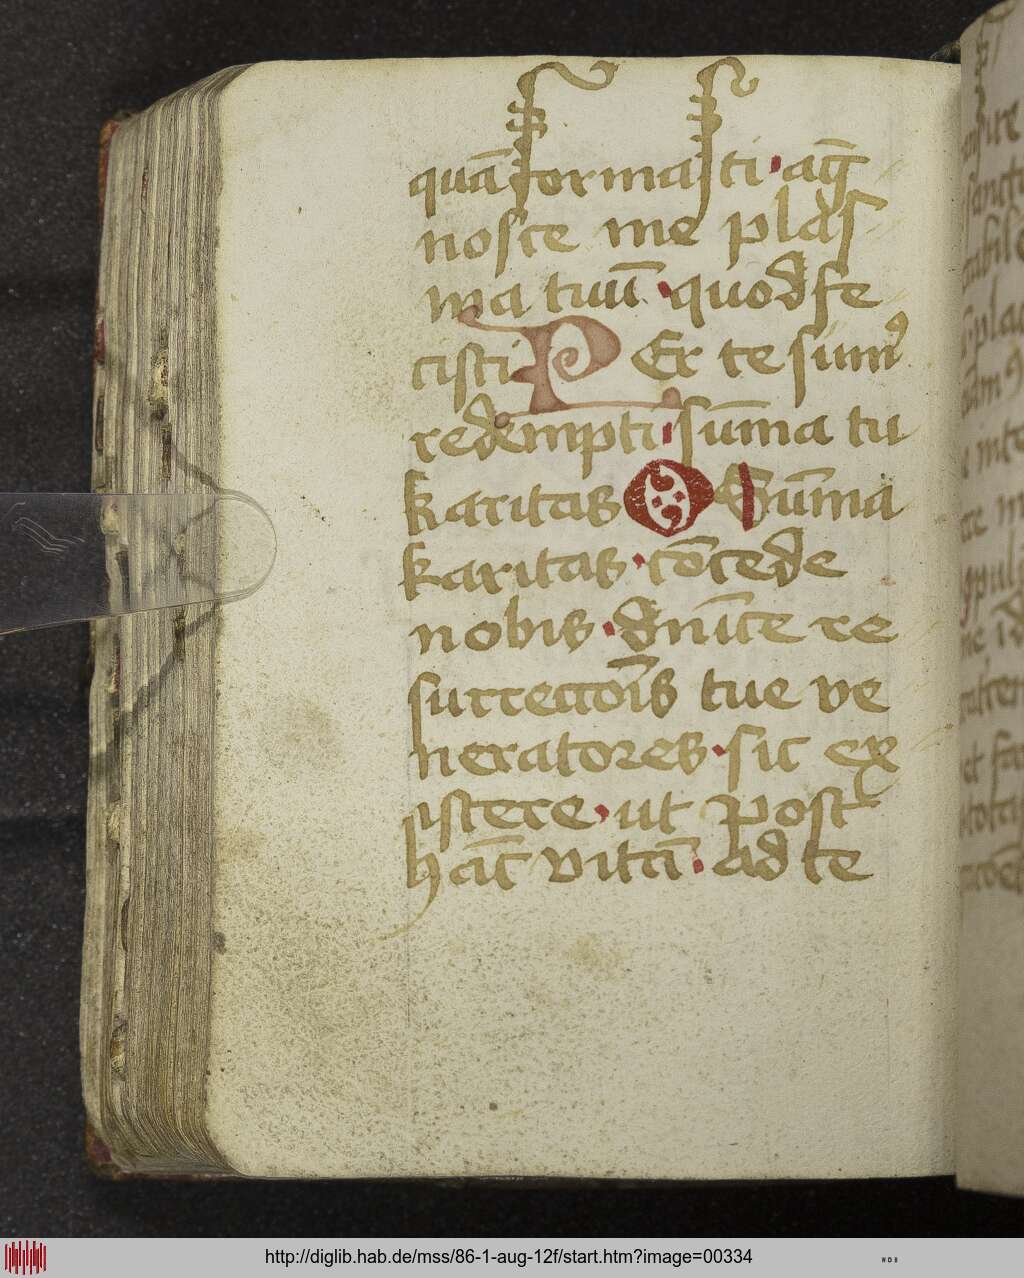 quā formasti · ag̅
nosce me plas
ma tuū · quod fe
cisti Per te sumꝰ
redempti · sūma tu
karitas O Sūma
karitas · cōcede
nobis · dnīce re
surrecc̄ois tue ve
neratores · sic ex
istere · ut post
hāc vitā · ad te
http://diglib.hab.de/mss/86-1-aug-12f/start.htm?image=00334